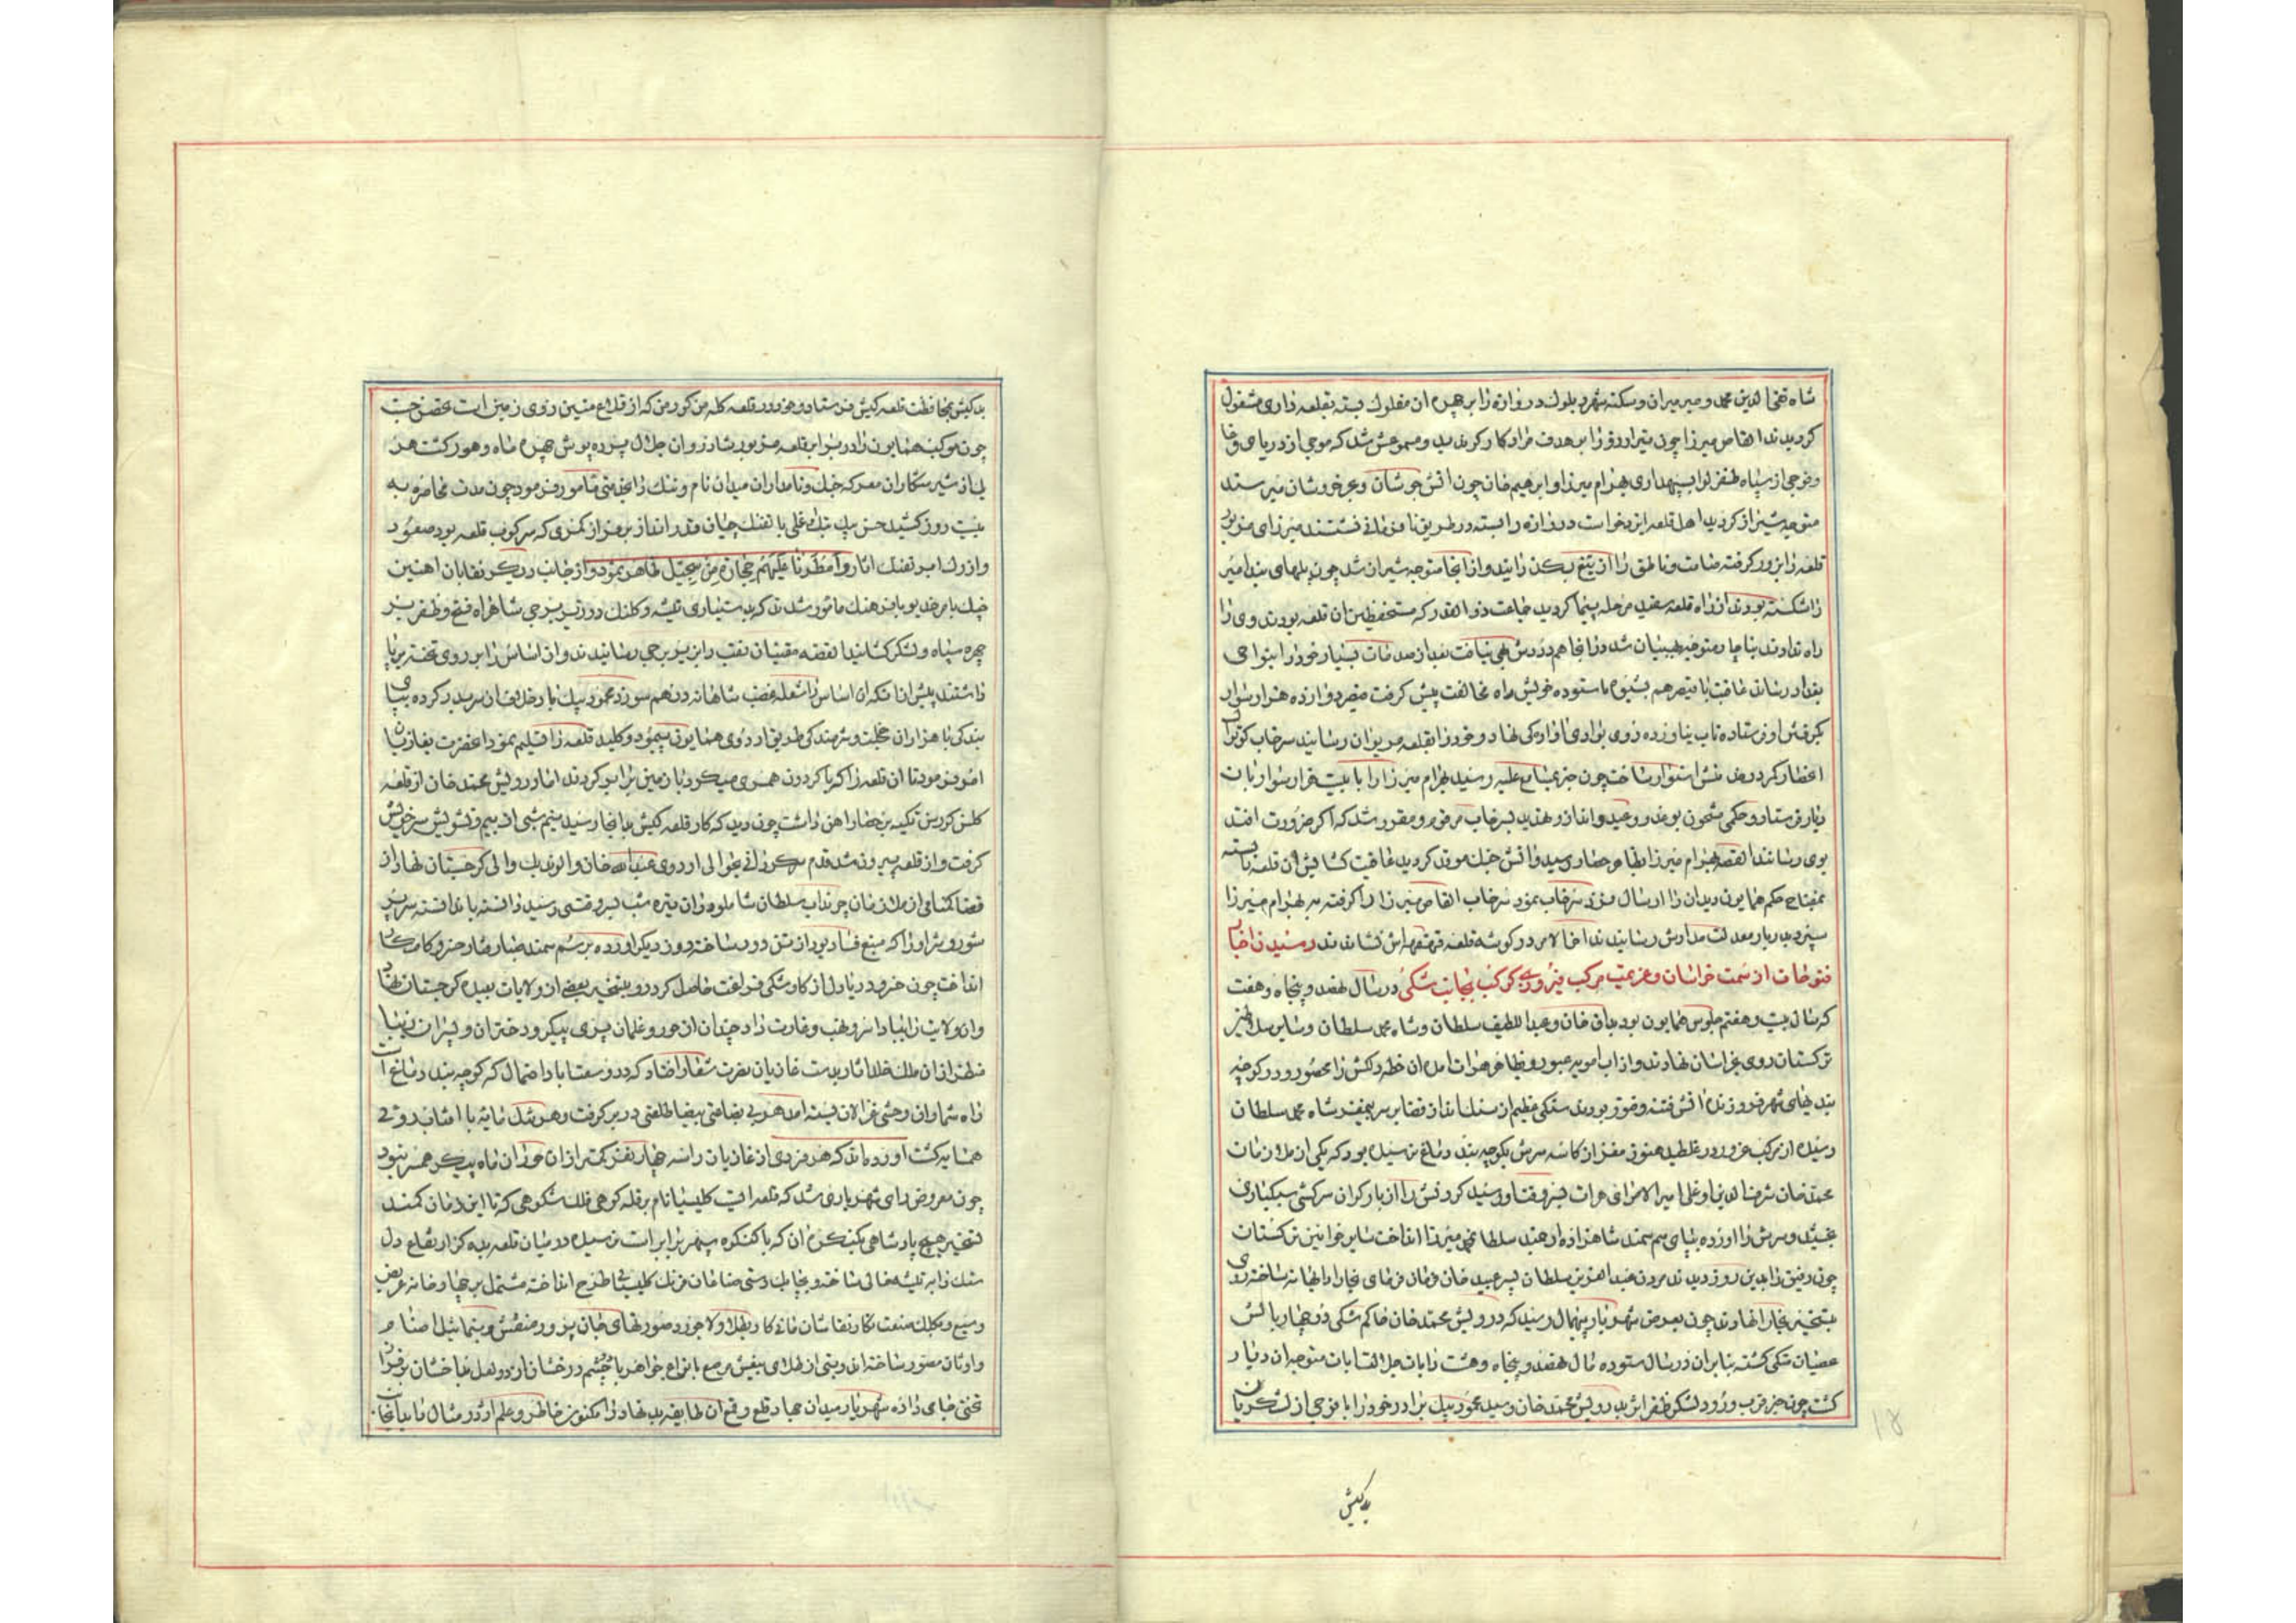 شاه تقی الدین محمد و میر میران و سکنه شهر دبلوک دروازه را بر چهره ان مفلوک بسته بقلعه داری مشغول
کردیدند القاص میرزا چون تیر ارزو را بر هدف مراد کارکر ندید و مسموعش شد که موجی از دریای وغا
و فوجی از سپاه ظفر لوا بسپهداری بهرام میرزا و ابرهیم خان چون اتش جوشان و بحر خروشان میرسند
متوجه شیراز کردید اهل قلعه ایزدخواست دروازه را بسته در طریق نافرمانی نشستند میرزای مزبور
قلعه را بزور کرفته صامت و ناطق را از تیغ بکذرانید و از انجا متوجه شیران شد چون پلهای بند امیر
را شکسته بودند از راه قلعه سفید مرحله پیما کردید جماعت ذوالقدر که مستحفظین ان قلعه بودند وی را
راه ندادند بناچار متوجه بهبهان شد در انجا هم دروش هی نیافت بعد از صدمات بسیار خود را بنواحی
بغداد رساند عاقبت با قیصر هم بشیوه ناستوده خویش راه مخالفت پیش کرفت قیصر دوازده هزار سوار
بکرفتن او فرستاده تاب نیاورده روی بوادی اوارکی نهاد و خود را بقلعه مریوان رسانید سرخاب کرد
اعضار کمر در خدمتش استوار ساخت چون خبر بمسامع علیه رسید بهرام میرزا را با بیست هزار سوار بان
دیار فرستاد و حکمی مشحون بوعد و وعید و انذار و تهدید بسرخاب مرقوم و مقرر شد که اکر ضرورت افتد
بوی رسانند القصه بهرام میرزا بظاهر حصار رسید و اتش جنک موقد کردید عاقبت کشایش ان قلعه نابسته
بمفتاح حکم همایون دیدان را ارسال نزد سرخاب نمود سرخاب القاص میرزا را کرفته به بهرام میرزا
سپرد بدربار معدلت مدارش رسانیدند اخر الامر در کوشه قلعه قهقهه اش نشاندند رسیدن اخبار
فتوحات از سمت خراسان و عزیمت مرکب فیروزی کوکب بجانب شکی در سال نهصد و پنجاه و هفت
که سال بیست و هفتم جلوس همایون بود براق خان و عبد اللطیف سلطان و شاه محمد سلطان و سایر سلاطین
ترکستان روی بخراسان نهادند و از اب امویه عبور و بظاهر هرات امده ان خطه دلکش را محصور و در کوچه
بندهای شهر فروزنده اتش فتنه و فتور بودند سنکی عظیم از سنک انداز قضا بر سر بیمغز شاه محمد سلطان
رسیده از مرکب غرور در غلطید هنوز مغز از کاسه سرش بکوچه بند دماغ نرسیده بود که یکی از ملازمان
محمد خان شرف الدین اوغلی امیر الامرای هرات بسروقت او رسید کردنش را از بار کران سرکشی سبکباری
بخشید و سرش را اورده بپای سم سمند شاهزاده ارجمند سلطان محمد میرزا انداخت سایر خوانین ترکستان
چون رفیق را بدین روز دیدند مردن عبد العزیز سلطان پسر عبید خان فرمان فرمای بخارا را بهانه ساخته روی
بتسخیر بخارا نهادند چون بعرض شهریار بیهمال رسید که درویش محمد خان حاکم شکی در چهار بالش
عصیان متکی کشته بنابران در سال ستوده فال نهصد و پنجاه و هشت رایات جلالت ایات متوجه ان دیار
کشت چون خبر قرب ورود لشکر ظفر اثر بدرویش محمد خان رسید محمود بیک برادر خود را با فوجی از لشکریان
بد کیش
بد کیش بمحافظت قلعه کیش فرستاد و خود در قلعه کله سن کورسن که از قلاع متین روی زمین است تحصن جست
چون موکب همایون را در برابر قلعه مزبور شادروان جلال پرده پوش چهره ماه و هور کشت هر
یک از شیر شکاران معرکه جنک و نامداران میدان نام و ننک را بخدمتی مامور فرمود چون مدت محاصره به
بیست روز کشید حسن بیک یتک اوغلی با تفنک چیان قدر انداز بر فراز کمری که سرکوب قلعه بود صعود
و از رک ابر تفنک اثار وامطرنا علیهم حجارة من سجیل ظاهر نمود و از جانب دیکر نقابان اهنین
چنک بامر خدیو با فرهنک مامور شدند که بدستیاری تیشه و کلنک در زیر برجی شاهراه فتح و ظفر بر
چهره سپاه و لشکر کشایند القصه مقنیان نقب را بزیر برجی رسانیدند و ان اساس را بر روی تخته بر پا
داشتند پیش از انکه ان اساس را شعله غضب شاهانه در هم سوزد محمود بیک بار خلاف از سر بدر کرده بپای
بندکی با هزاران خجلت و شرمندکی طریق اردوی همایون پیمود و کلید قلعه را تسلیم نمود اعلحضرت بغازیان
امر فرمود تا ان قلعه را که با کردون همسری میکرد با زمین برابر کردند اما درویش محمد خان از قلعه
کلسن کورسن تکیه بر حصار اهن داشت چون دید که کار قلعه کیش بدانجا رسید نیم شبی از بیم و تشویش سر خویش
کرفت و از قلعه بیرون شد قدم مکر در حوالی اردوی عبدالله خان و الوند بیک والی کرجستان نهاد از
قضا کمنامی از ملازمان چرنداب سلطان شاملو دران تیره شب بسر وقتش رسید دانسته یا ندانسته سر پر
شور و شر او را که منبع فساد بود از تن دور ساخته روز دیکر اورده برسم سمند صبا رفتار خسرو کامکار
انداخت چون خسرو دریا دل از کار شکی فراغت حاصل کرد رو بتسخیر بعضی از ولایات بعیده کرجستان نهاد
و ان ولایت را بباد اسر و نهب و غارت داد چندان از حور و غلمان پری پیکر و دختران و پسران زیبا
منظر از ان ملک خلد اثار بدست غازیان نصرت شعار افتاد که در وسعت اباد احتمال که کوچه بند دماغ است
راه شماران وحشی غزالان بسته امد هر بی بضاعتی بیضا طلعتی در بر کرفت و هر شل مایه با افتاب روئی
همسایه کشت اورده اند که هر فردی از غازیان را سه چهار نفر کمتر از ان حوران ماه پیکر همسر نبود
چون معروض رای شهریاری شد که قلعه ایست کلیسیا نام بر قله کوهی فلک شکوهی که تا این زمان کمند
تسخیر هیچ پادشاهی بکنکره ان که با کنکره سپهر برابر است نرسیده در میان قلعه بده کز ارتفاع دل
سنک را به تیشه خالی ساخته و بچابک دستی صناعان فرنک کلیسیا طرح انداخته مشتمل بر چهار خانه عریض
وسیع و بکلک صنعت نکار نقاشان مانی کار بطلا و لاجورد صورتهای جان پرور منقش و بتماثیل اصنام
و اوثان مصور ساخته اند و بتی از طلای بیغش مرصع بانواع جواهر با چشم درخشان از دو لعل بدخشان بر فراز
تختی جای داده شهریار میدان جهاد قلع و قمع ان طایفه بد نهاد را مکنون خاطر و علم اژدر مثال را بدانجانب